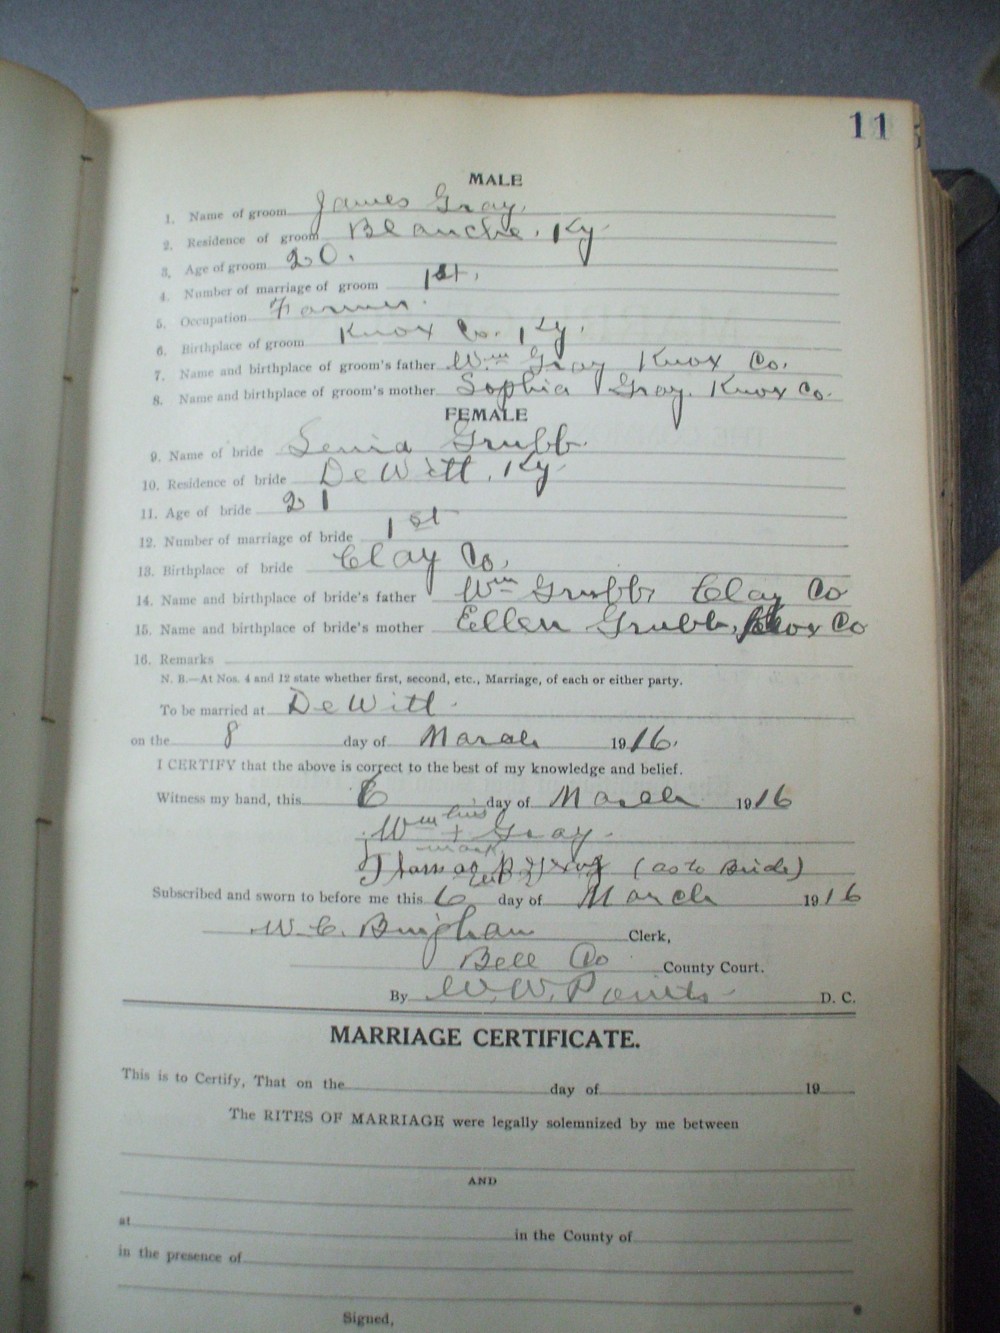 11
MALE
1. Name of groom James Gray.
2. Residence of groom Blanche, Ky
3. Age of groom 20.
4. Number of marriage of groom 1st,
5. Occupation Farmer.
6. Birthplace of groom Knox Co. Ky.
7. Name and birthplace of groom's father Wm Gray Knox Co.
8. Name and birthplace of groom's mother Sophia Gray. Knox Co.
FEMALE
9. Name of bride Grubb.
10. Residence of bride DeWitt, Ky
11. Age of bride 21
12. Number of marriage of bride 1st
13. Birthplace of bride Clay Co,
14. Name and birthplace of bride's father Wm Grubb, Clay Co
15. Name and birthplace of bride's mother Ellen Grubb, Knox Co
16. Remarks
N. B.—At Nos. 4 and 12 state whether first, second, etc., Marriage, of each or either party.
To be married at DeWitt.
on the 8 day of March 1916.
I CERTIFY that the above is correct to the best of my knowledge and belief.
Witness my hand, this 6 day of March 1916
his
Wm + Gray.
mark
Thomas (as to Bride)
Subscribed and sworn to before me this 6 day of March 1916
W. C. Bingham Clerk,
Bell Co County Court.
By W. W. Points D. C.
MARRIAGE CERTIFICATE.
This is to Certify, That on the day of 19
The RITES OF MARRIAGE were legally solemnized by me between
AND
at in the County of
in the presence of
Signed,